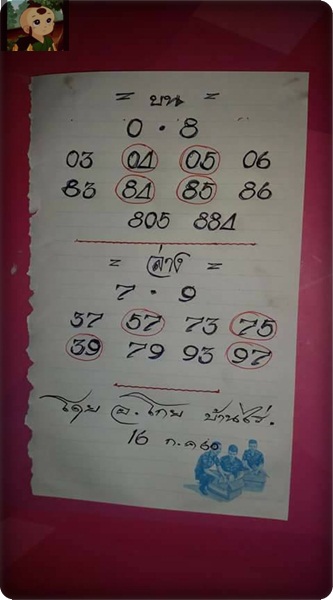 = บน =
0 · 8
03 04 05 06
83 84 85 86
805 884
= ล่าง =
7 · 9
37 57 73 75
39 79 93 97
โดย อ. โกย บ้านไร่.
16 ก.ค 60